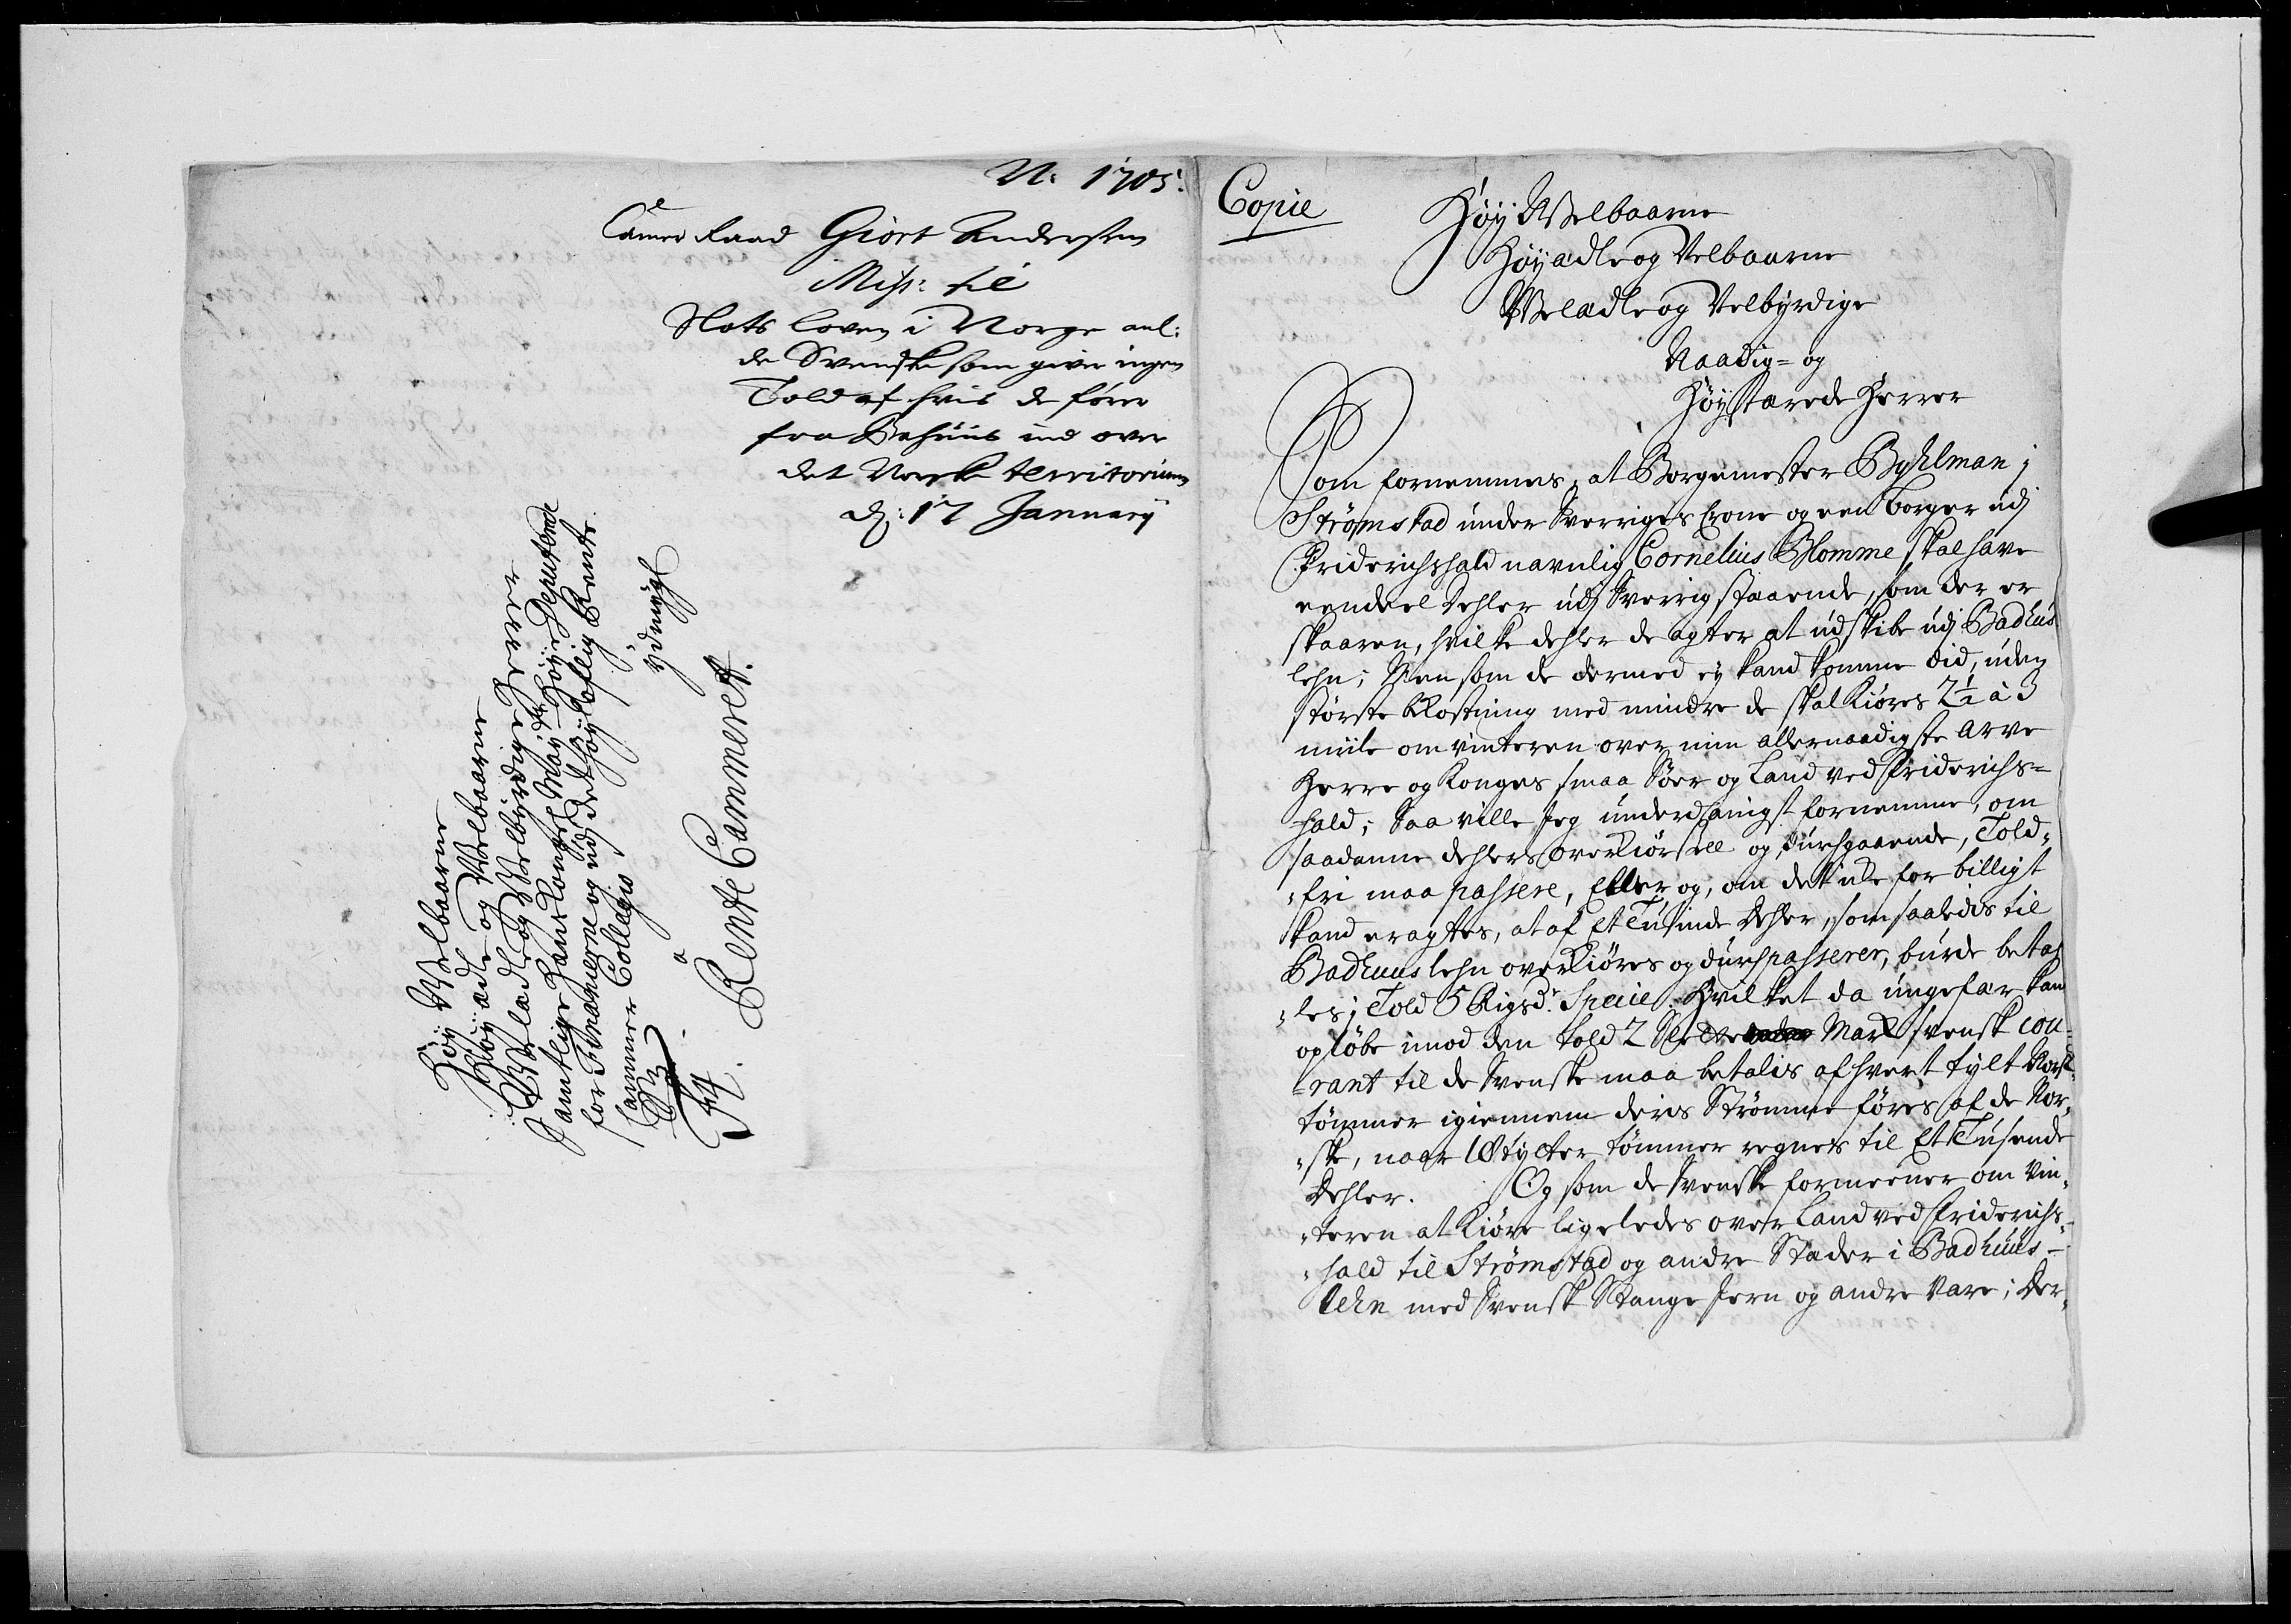 No 1705.
Camer Raad Giort Andersen
Miss: til
Slots loven i Norge anl:
de Svenske som giver ingen
Told af hvis de fører
fra Bahuus ind over
det Norske territorium
d: 17 January
Høy Welbaarne
Høyædle og Velbaarne
Velædle og Velbyrdige Herrer
Samtlige Hans Kongel: May:ts Høye Deputerede
for Finanzerne og udj det høyloflig Rente
Cammer Collegio
ydmygl
a
Rente Cammeret.
Copie
Høy Welbaarne
Høyædle og Velbaarne
Velædle og Velbyrdige
Naadig= og
Høystærede Herrer
Som fornemmes, at Borgemester Byhlman i
Strømstad under Sverriges Crone og een borger udj
Friderichshald navnlig Cornelius Blomme skal have
eendeel dehler udj Sverrig staaende, som der er
skaaren, hvilke dehler de agter at udskibe udj Badhus
lehn; Men som de dermed ey kand komme did, uden
største Kostning med mindre de skal Kiøres 2½ à 3
miile om vinteren over min allernaadigste Arve
Herre og Konges smaa Søer og Land ved Friderichs=
hald; Saa ville Jeg underdanigst fornemme, om
saadanne dehlers overkiørsell og durchgaaende, Told=
fri maa passere, Eller og, om det icke for billigt
kand eragtes, at af Et Tusinde Dehler, som saaledis til
Badhuus lehn overkiøres og durchpasserer, burde beta=
les i Told 5 Rigsdr. Specie. Hvilket da ungefær kand
opløbe imod den told 2 Slette Mark svensk cou=
rant til de Svenske maa betalis af hvert tylt
tømmer igiennem deris Strømme føres af de Nor=
ske, naar tylter tømmer regnes til Et Tusende
Dehler. Og som de Svenske formeener om Vin=
teren at Kiøre ligeledes over Land ved Friderichs=
hald til Strømstad og andre Stæder i Badhuus=
lehn med Svensk Stange Jern og andre Vare; Der=